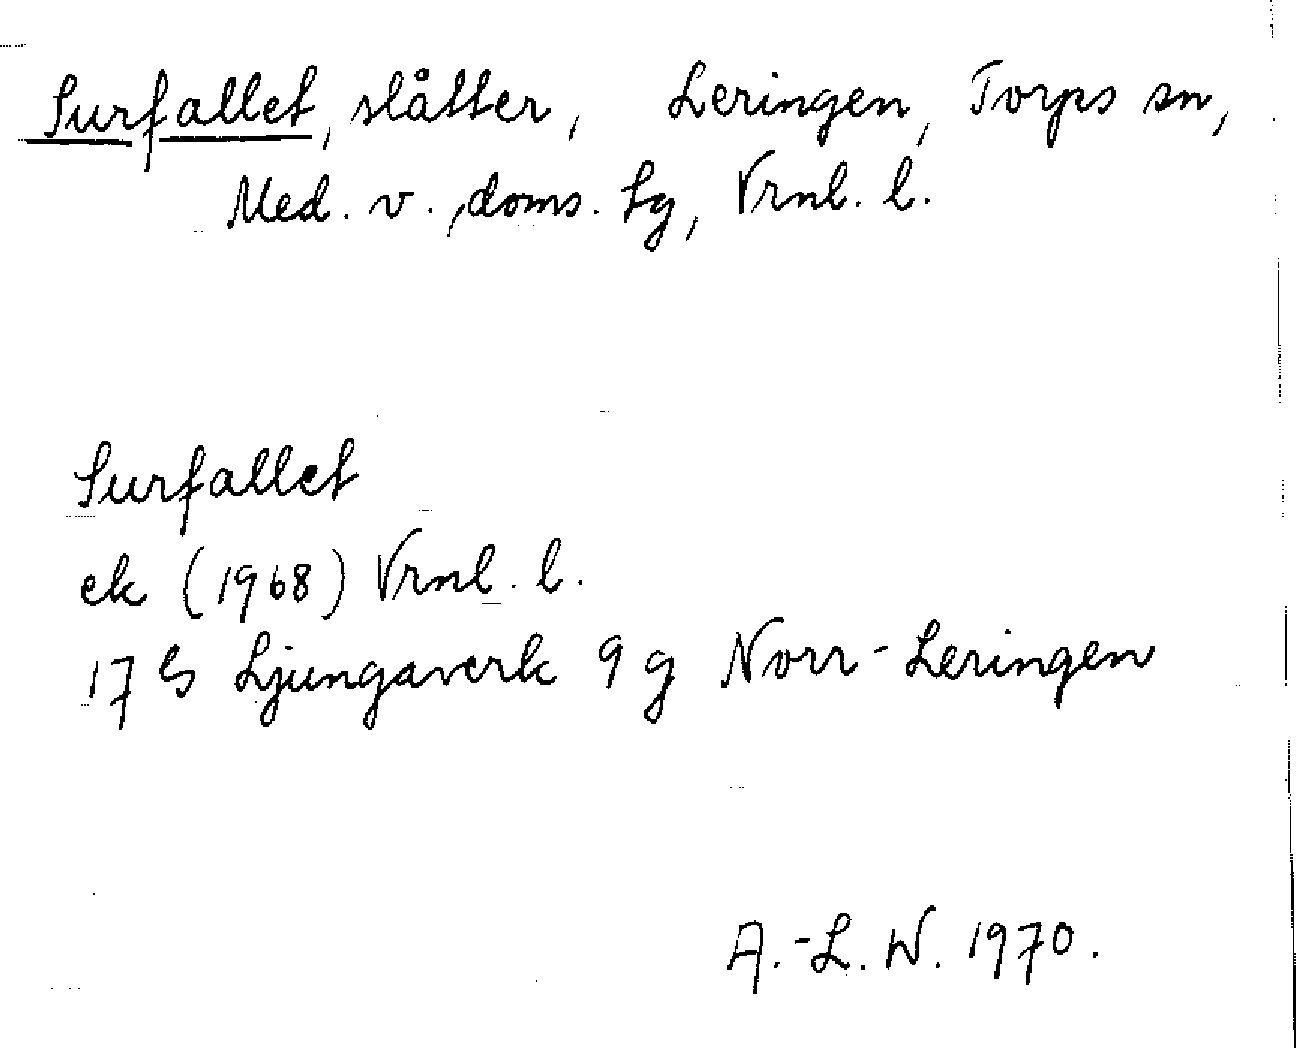 Surfallet, slåtter, Leringen, Torps sn,
Med. v., doms. lg, Vrnl. l.
Surfallet
ek (1968) Vrnl. l.
17 G Ljungaverk 9 g Norr-Leringen
A.-L. W. 1970.